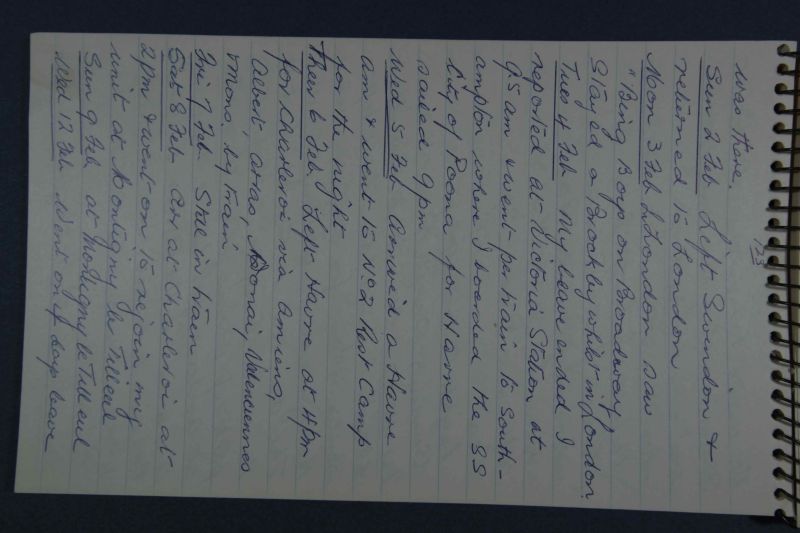 123
was there.
Sun 2 Feb Left Swindon &
returned to London
Mon 3 Feb In London saw
"Bing Boys on Broadway"
Stayed a Brockley whilst in London.
Tues 4 Feb My leave ended I
reported at Victoria Station at
9.5 am & went per train to South-
ampton where I boarded the SS
City of Poona for Havre
sailed 9 pm
Wed 5 Feb arrived a Havre
am & went to No 2 Rest Camp
for the night
Thur 6 Feb Left Havre at 4pm
for Charleroi via Amiens
Albert Arras, Valenciennes
Mons, by train
Fri 7 Feb. Still in train
Sat 8 Feb arr at Charleroi at
2pm & went on to rejoin my
unit at Montigny le Tilleul
Sun 9 Feb at Montigny le Tilleul
Wed 12 Feb Went on 4 days leave